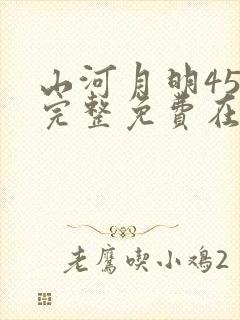 山河月明45
完整免费在
老鹰喫小鸡2